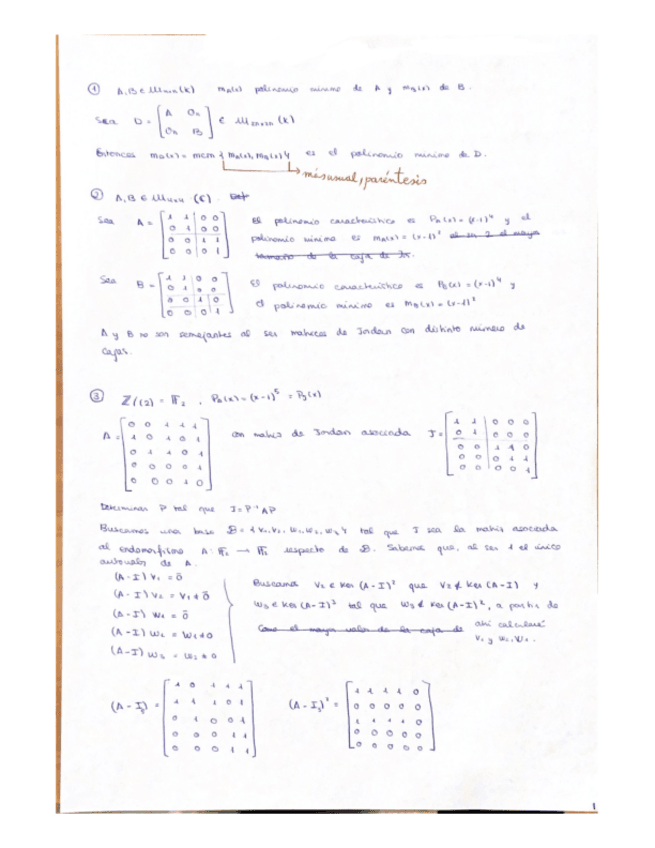 ① A, B ∈ M_{n×n}(K) m_A(x) polinomio mínimo de A y m_B(x) de B.
Sea D = [ A 0n
0n B ] ∈ M_{2n×2n}(K)
Entonces m_D(x) = mcm { m_A(x), m_B(x) } es el polinomio mínimo de D.
→ más usual, paréntesis
② A, B ∈ M_{4×4}(C). Def
Sea A = [ 1 1 0 0
0 1 0 0
0 0 1 1
0 0 0 1 ]
El polinomio característico es P_A(x) = (x-1)^4 y el
polinomio mínimo es m_A(x) = (x-1)^2 el ser 2 el mayor
tamaño de la caja de
Sea B = [ 1 1 0 0
0 1 0 0
0 0 1 0
0 0 0 1 ]
El polinomio característico es P_B(x) = (x-1)^4 y
el polinomio mínimo es m_B(x) = (x-1)^2
A y B no son semejantes al ser matrices de Jordan con distinto número de
cajas.
③ Z/(2) = F_2 , P_A(x) = (x-1)^5 = P_J(x)
A = [ 0 0 1 1 1
1 0 1 0 1
0 1 1 0 1
0 0 0 0 1
0 0 0 1 0 ]
con matriz de Jordan asociada J = [ 1 1 0 0 0
0 1 0 0 0
0 0 1 1 0
0 0 0 1 1
0 0 0 0 1 ]
Determinar P tal que J = P^{-1}AP
Buscamos una base B = { v_1, v_2, w_1, w_2, w_3 } tal que J sea la matriz asociada
al endomorfismo A: → respecto de B. Sabemos que, al ser 1 el único
autovalor de A.
(A - I) v_1 = 0
(A - I) v_2 = v_1 ≠ 0
(A - I) w_1 = 0
(A - I) w_2 = w_1 ≠ 0
(A - I) w_3 = w_2 ≠ 0
Buscamos v_2 ∈ Ker (A - I)^2 que v_2 ∉ Ker (A - I) y
w_3 ∈ Ker (A - I)^3 tal que w_3 ∉ Ker (A - I)^2, a partir de
Como el mayor valor de la caja de ahí calcularé
v_1 y w_2, w_1.
(A - I_5) = [ 1 0 1 1 1
1 1 1 0 1
0 1 0 0 1
0 0 0 1 1
0 0 0 1 1 ]
(A - I_5)^2 = [ 1 1 1 1 0
0 0 0 0 0
1 1 1 1 0
0 0 0 0 0
0 0 0 0 0 ]
1